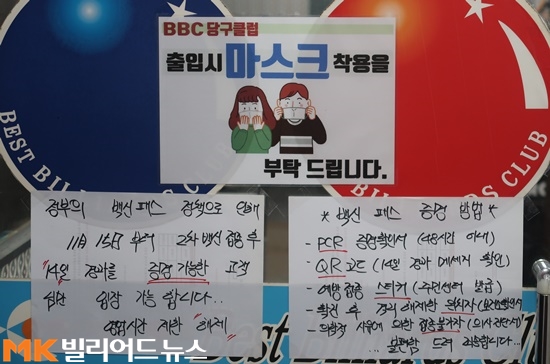 BBC 당구클럽
출입시 마스크 착용을
부탁 드립니다.
BEST BIL
CLUB
정부의 백신 패스 정책으로 인해
11月 15日 부터 2차 백신 접종 후
"14일 경과를 증명 가능한 고객
입장 가능 합니다..
영업시간 제한 "해제"
* 백신 패스 증명 방법 *
- PCR 음성확인서 (48시간 이내)
- QR 코드 (14일 경과 메세지 확인)
- 예방접종 스티커 (주민센터 발급)
- 확진 후 격리 해제한 완치자
- 의학적 사유에 의한 접종불가자
불편함 드려 죄송합니다...
MK빌리어드뉴스